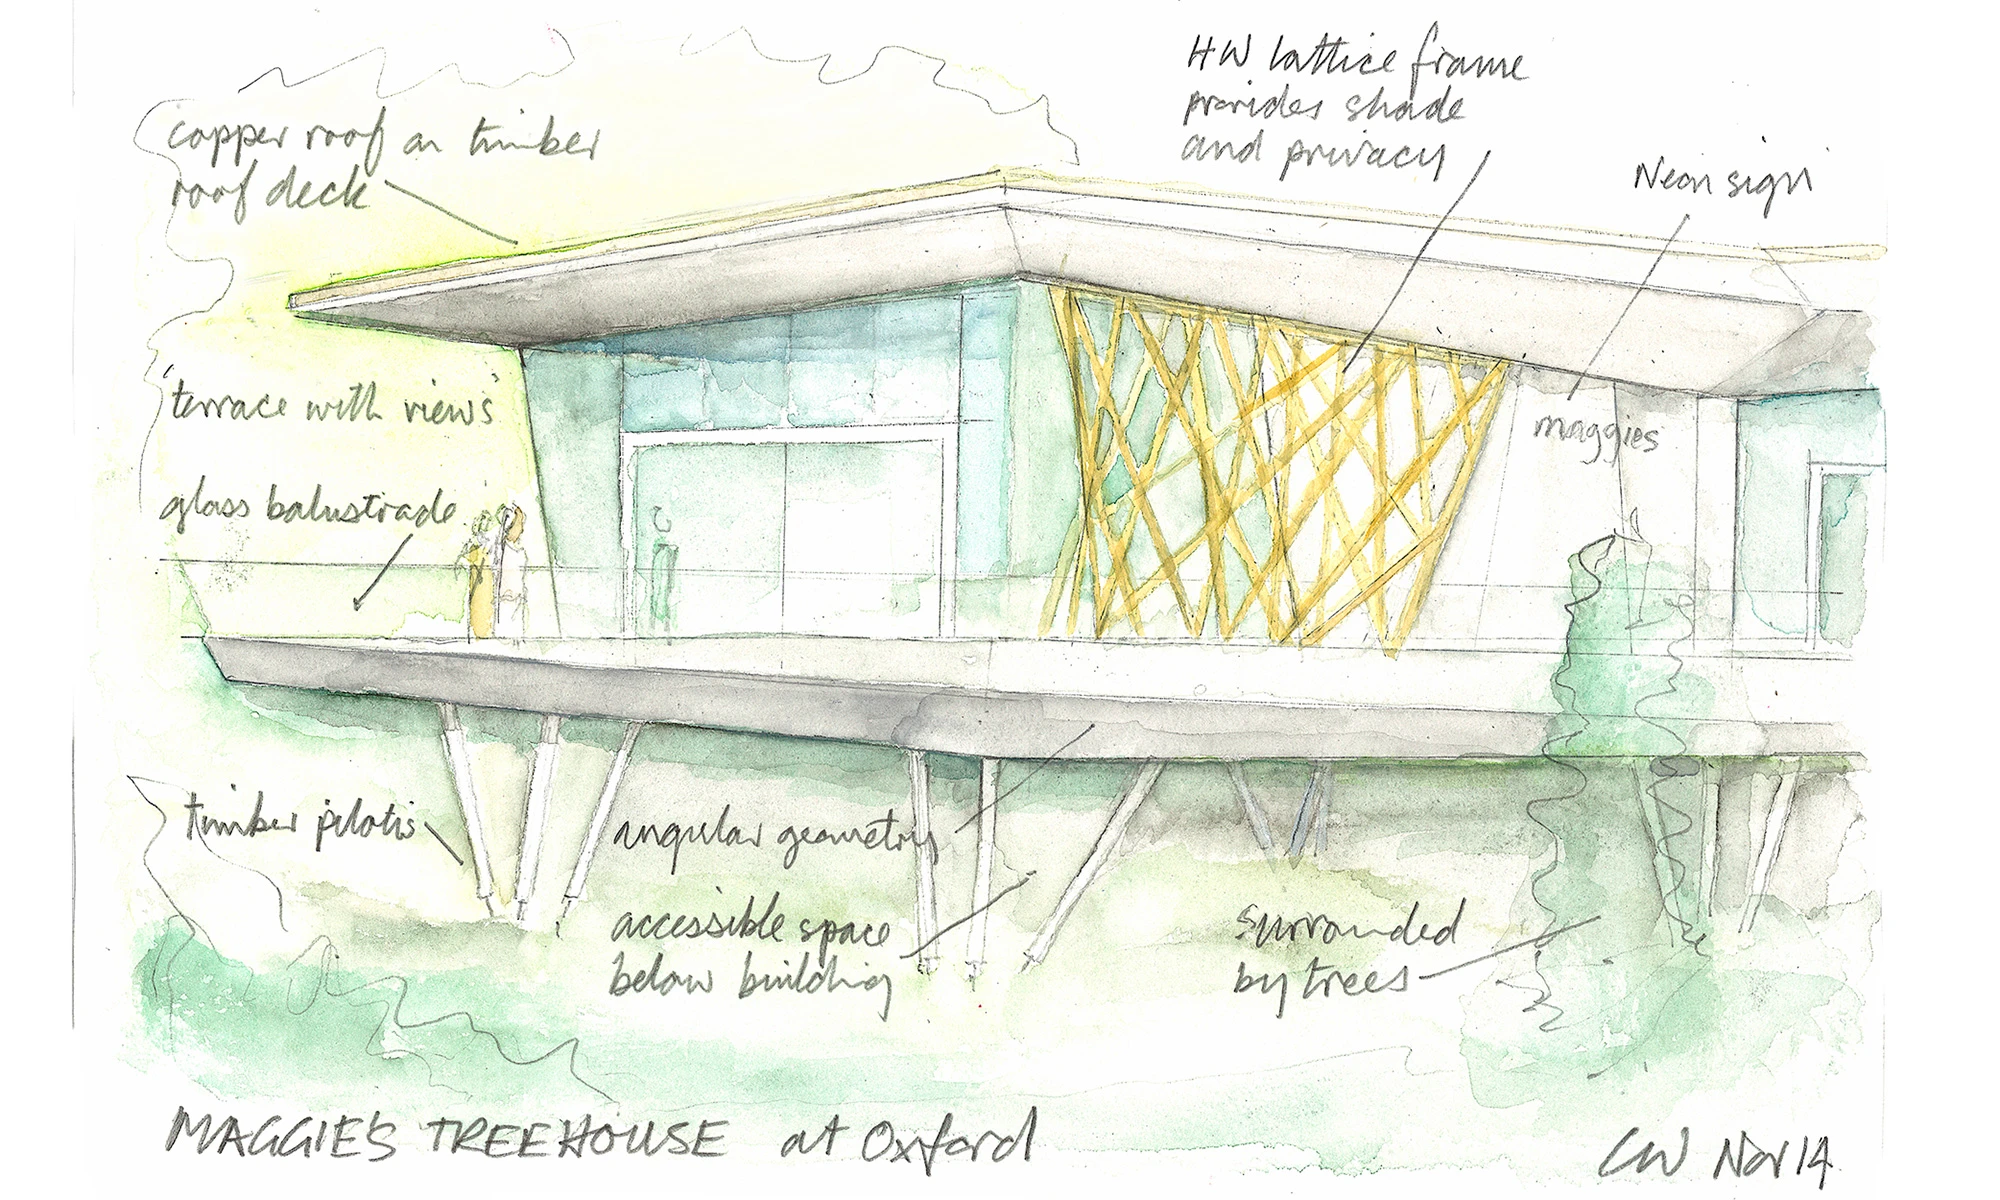 HW lattice frame
provides shade
and privacy
Neon sign
copper roof on timber
roof deck
'terrace with views'
maggies
glass balustrade
timber pilotis
angular geometry
accessible space
below building
surrounded
by trees
MAGGIE'S TREEHOUSE at Oxford
CW Nov 14